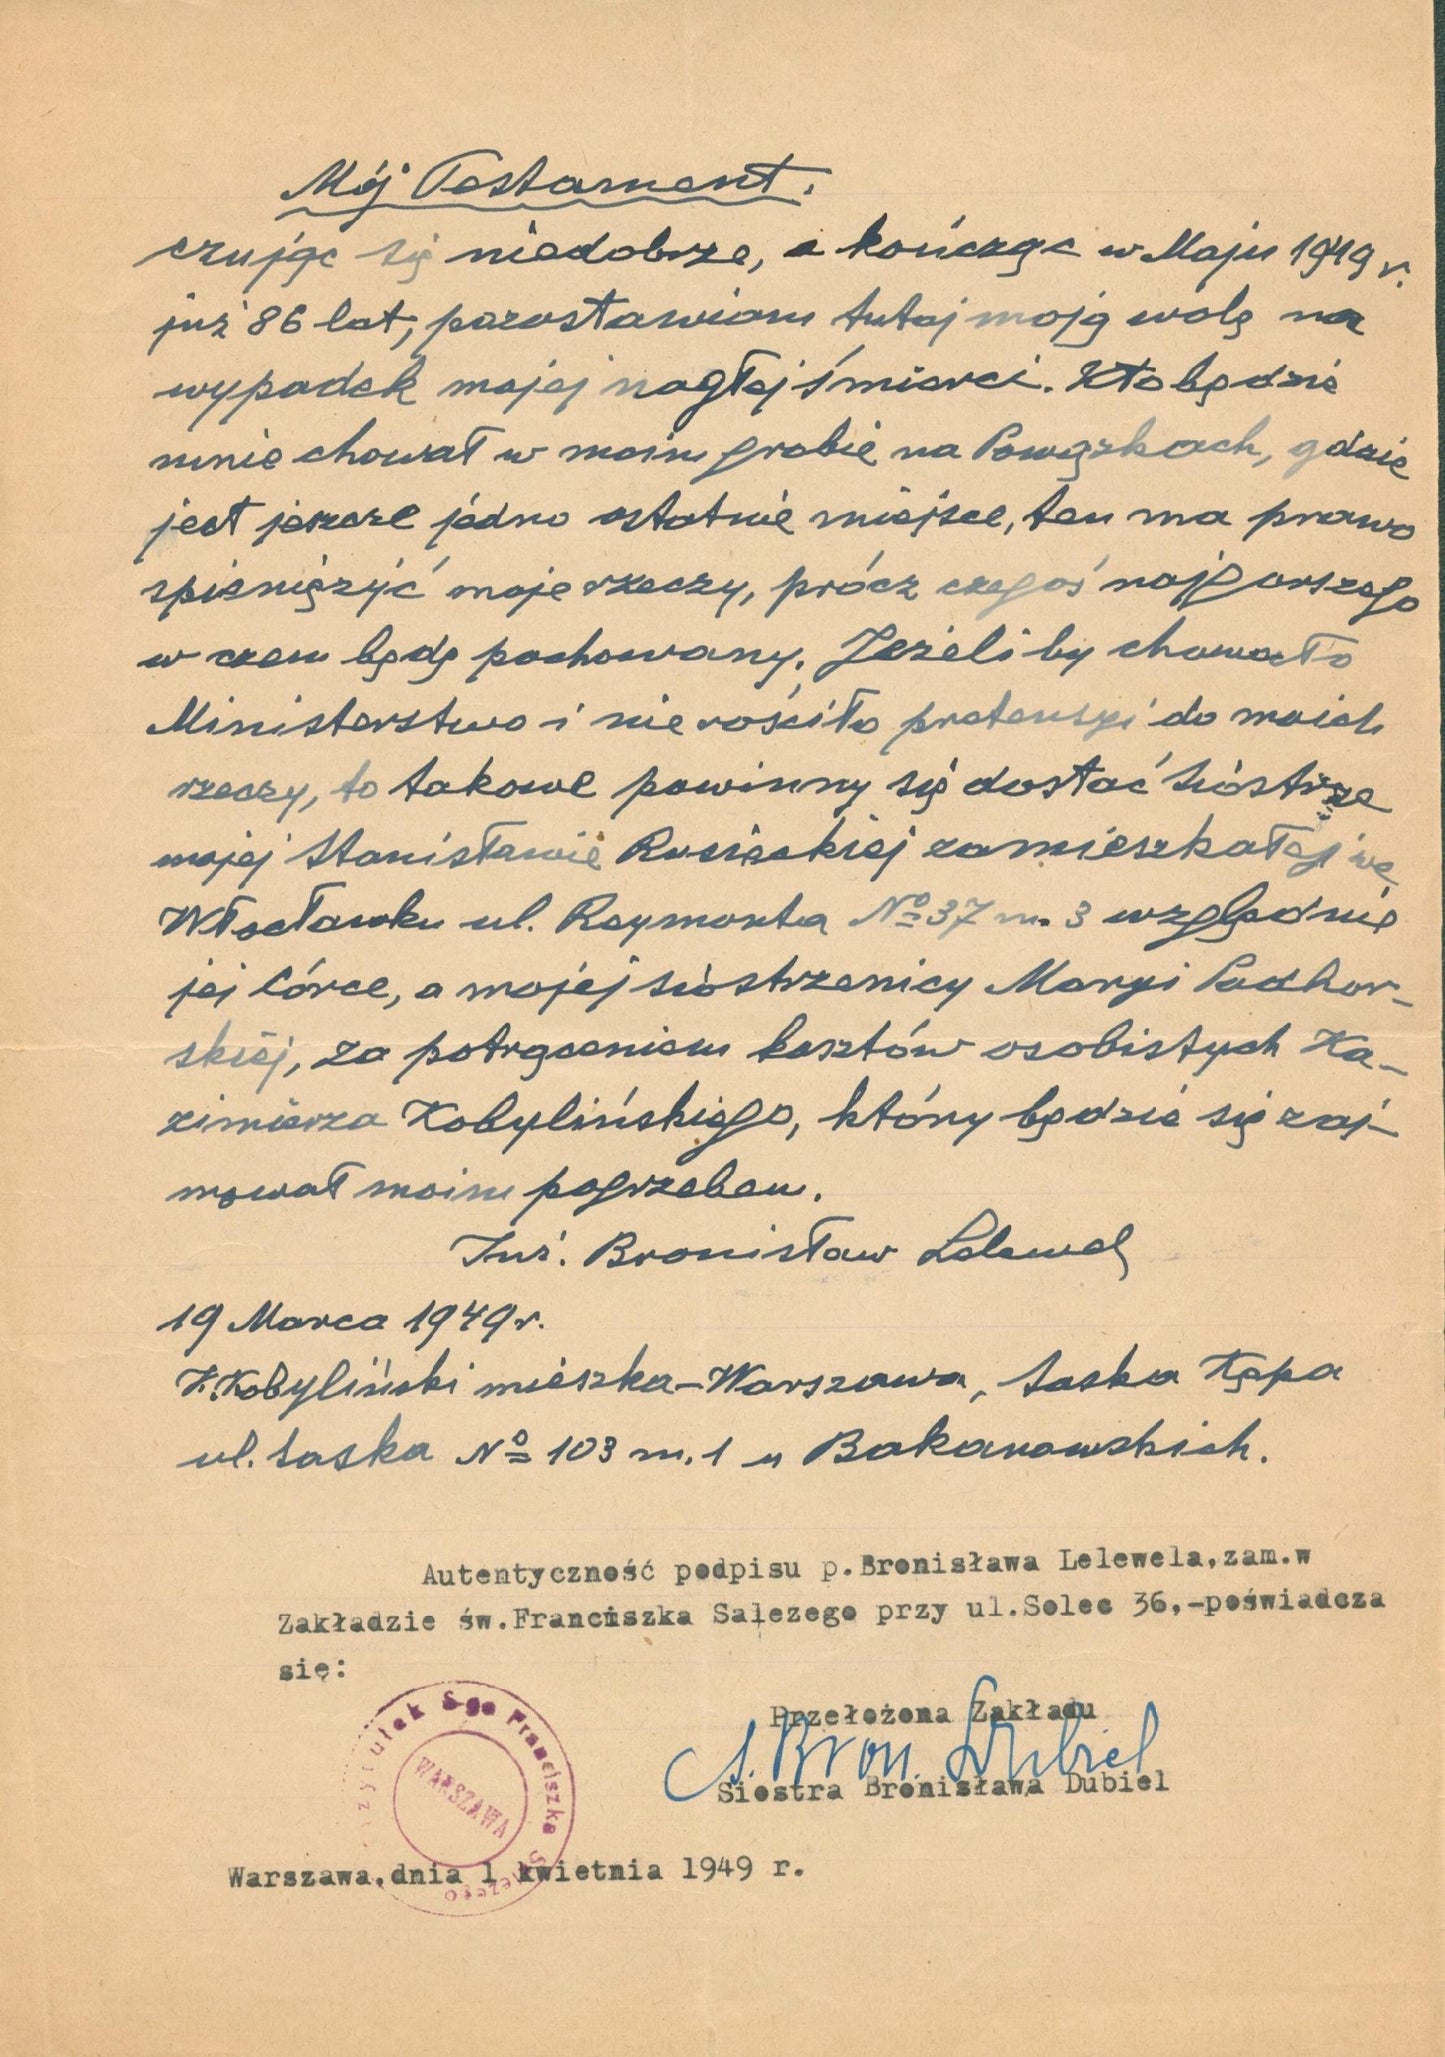 Mój Testament.
czując się niedobrze, a kończąc w Maju 1949 r.
już 86 lat, pozostawiam tutaj moją wolę na
wypadek mojej nagłej śmierci. Kto będzie
mnie chował w moim grobie na Powązkach, gdzie
jest jeszcze jedno ostatnie miejsce, ten ma prawo
spieniężyć moje rzeczy, prócz czegoś najgorszego
w czem będę pochowany. Jeżeli by chowało
Ministerstwo i nie rościło pretensyi do moich
rzeczy, to takowe powinny się dostać siostrze
mojej Stanisławie Rusieckiej zamieszkałej we
Włocławku ul. Reymonta Nº 37 m. 3 względnie
jej córce, a mojej siostrzenicy Maryi Padhor-
skiej, za potrąceniem kosztów osobistych Ka-
zimierza Kobylińskiego, który będzie się zaj-
mował moim pogrzebem.
Inż. Bronisław Lelewel
19 Marca 1949 r.
K. Kobyliński mieszka - Warszawa, Saska Kępa
ul. Saska Nº 103 m. 1 u Bakanowskich.
Autentyczność podpisu p.Bronisława Lelewela,zam.w
Zakładzie św.Franciszka Salezego przy ul.Solec 36,-poświadcza
się:
Przełożona Zakładu
S. Bron. Dubiel
Siostra Bronisława Dubiel
Przytułek S-go Franciszka Salezego
WARSZAWA
Warszawa,dnia 1 kwietnia 1949 r.